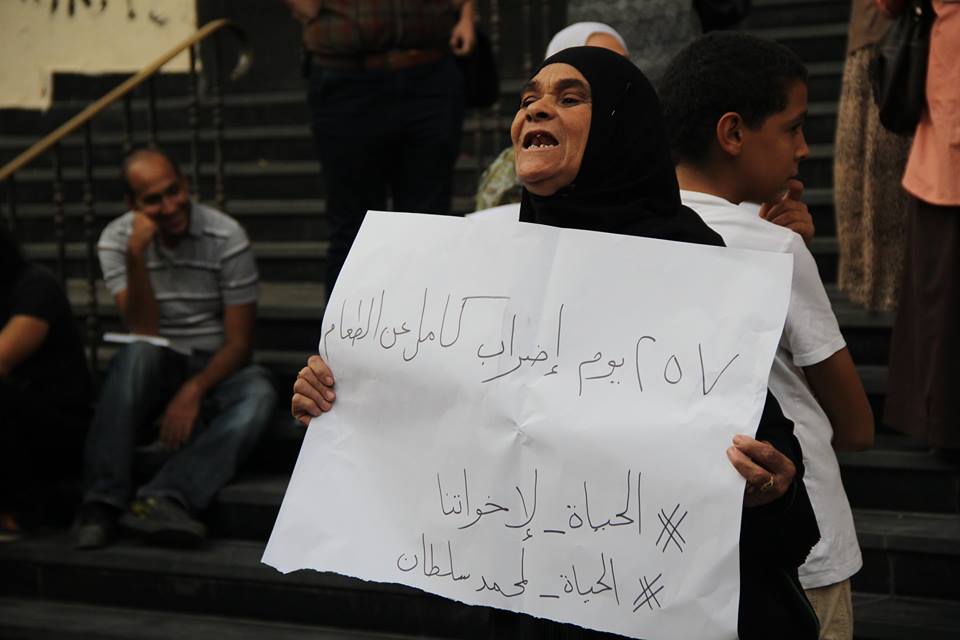 ٢٥٧ يوم إضراب كامل عن الطعام
# الحياة_لإخواتنا
# الحياة_لمحمد سلطان